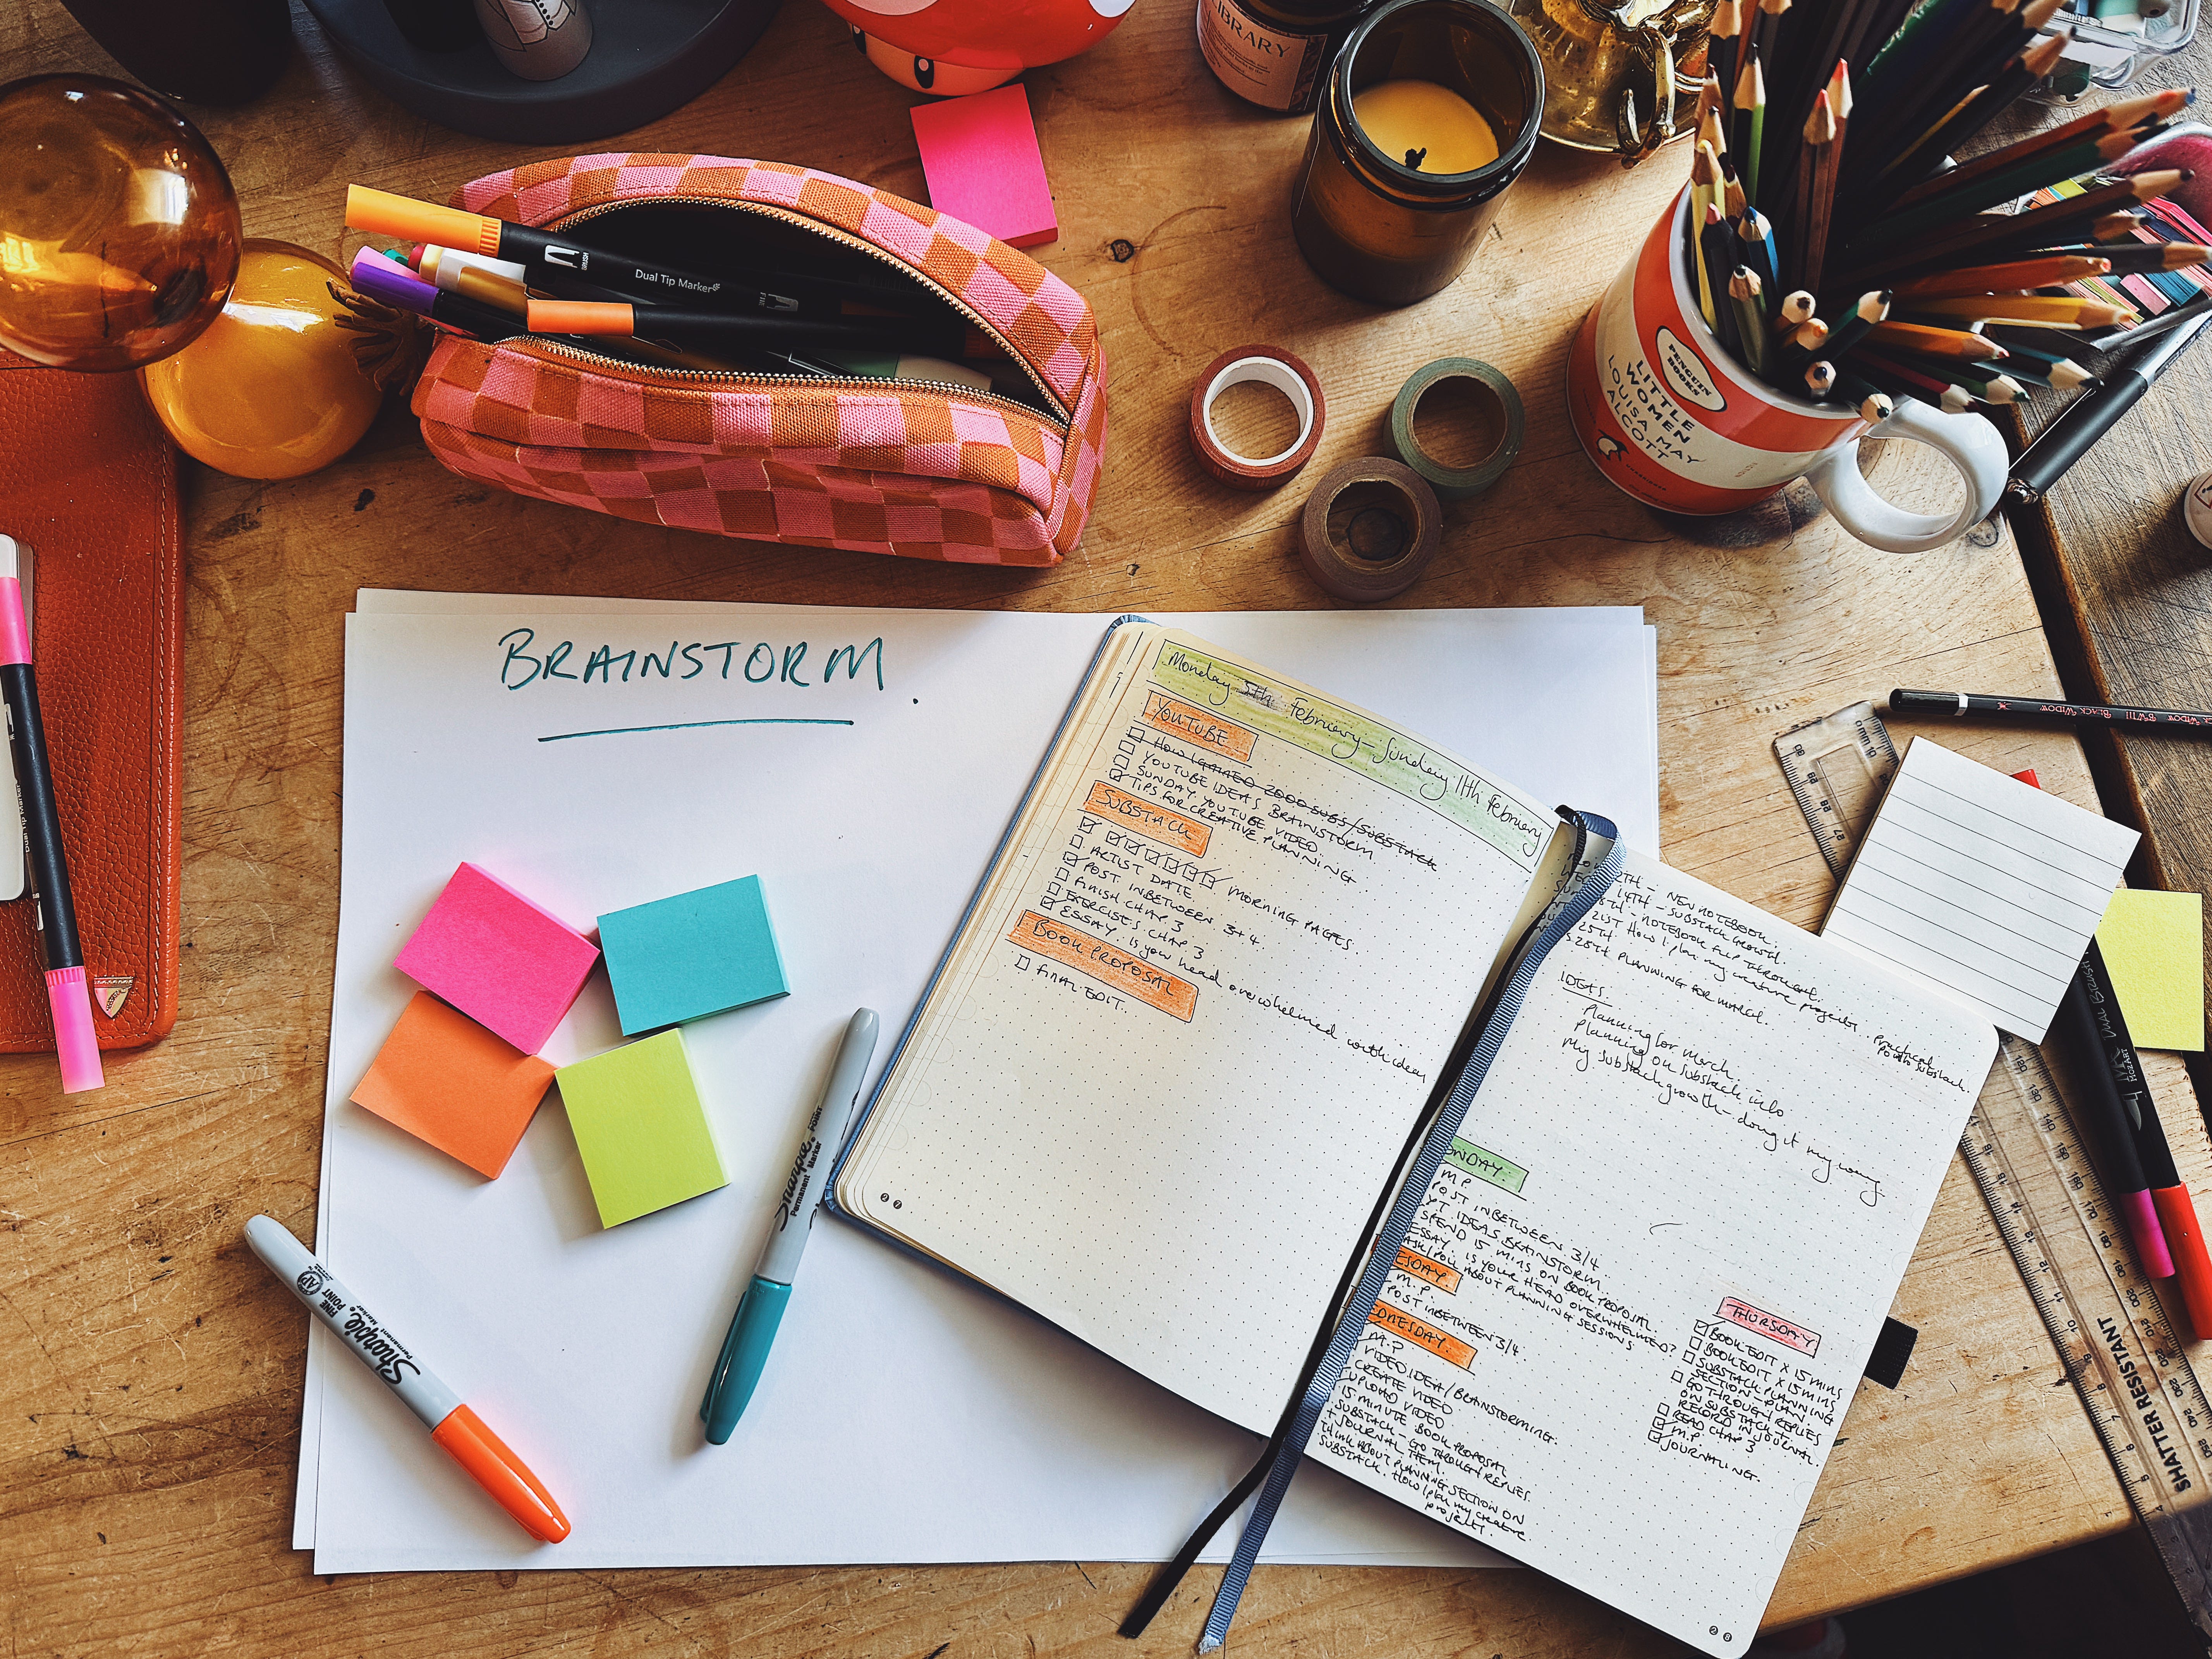 LIBRARY
Dual Tip Marker
PENGUIN
BOOKS
LITTLE
WOMEN
LOUISA MAY
ALCOTT
BRAINSTORM
Monday 5th February – Sunday 11th February
YOUTUBE
HOW I GAINED 2000 SUBS/SUBSTACK
YOUTUBE IDEAS BRAINSTORM
SUNDAY YOUTUBE VIDEO
TIPS FOR CREATIVE PLANNING.
SUBSTACK
MORNING PAGES.
ARTIST DATE
POST INBETWEEN 3+4.
FINISH CHAP 3
EXERCISES CHAP 3
ESSAY. Is your head overwhelmed with ideas
BOOK PROPOSAL
FINAL EDIT.
27
12TH – NEW NOTEBOOK.
14TH – SUBSTACK GROWTH.
18TH – NOTEBOOK FLIP THROUGH.
21ST How I plan my creative projects.
25TH.
28TH PLANNING FOR MARCH.
Practical
Substack.
IDEAS.
Planning for March
Planning on Substack info
My Substack growth – doing it my way.
ONDAY
M.P
POST INBETWEEN 3/4
YT IDEAS BRAINSTORM.
SPEND 15 MINS ON BOOK PROPOSAL
ESSAY IS YOUR HEAD OVERWHELMED?
ASK/POLL ABOUT PLANNING SESSIONS
ESDAY
M.P.
POST INBETWEEN 3/4.
DNESDAY
M.P
VIDEO IDEA/BRAINSTORMING.
CREATE VIDEO
UPLOAD VIDEO
15 MINUTE BOOK PROPOSAL
SUBSTACK – GO THROUGH REPLIES.
+ JOURNAL THEM.
THINK ABOUT PLANNING SECTION ON
SUBSTACK. How I plan my creative
projects
THURSDAY
BOOK EDIT X 15 MINS
BOOK EDIT X 15 MINS
SUBSTACK PLANNING
SECTION – PLAN
GO THROUGH REPLIES
ON SUBSTACK +
RECORD IN JOURNAL.
READ CHAP 3
M.P.
JOURNALING.
28
Sharpie.
FINE
POINT
Permanent Marker
Sharpie.
FINE POINT
Permanent Marker
BLACK WIDOW
DUAL BRUSH
MOZART
SHATTER RESISTANT